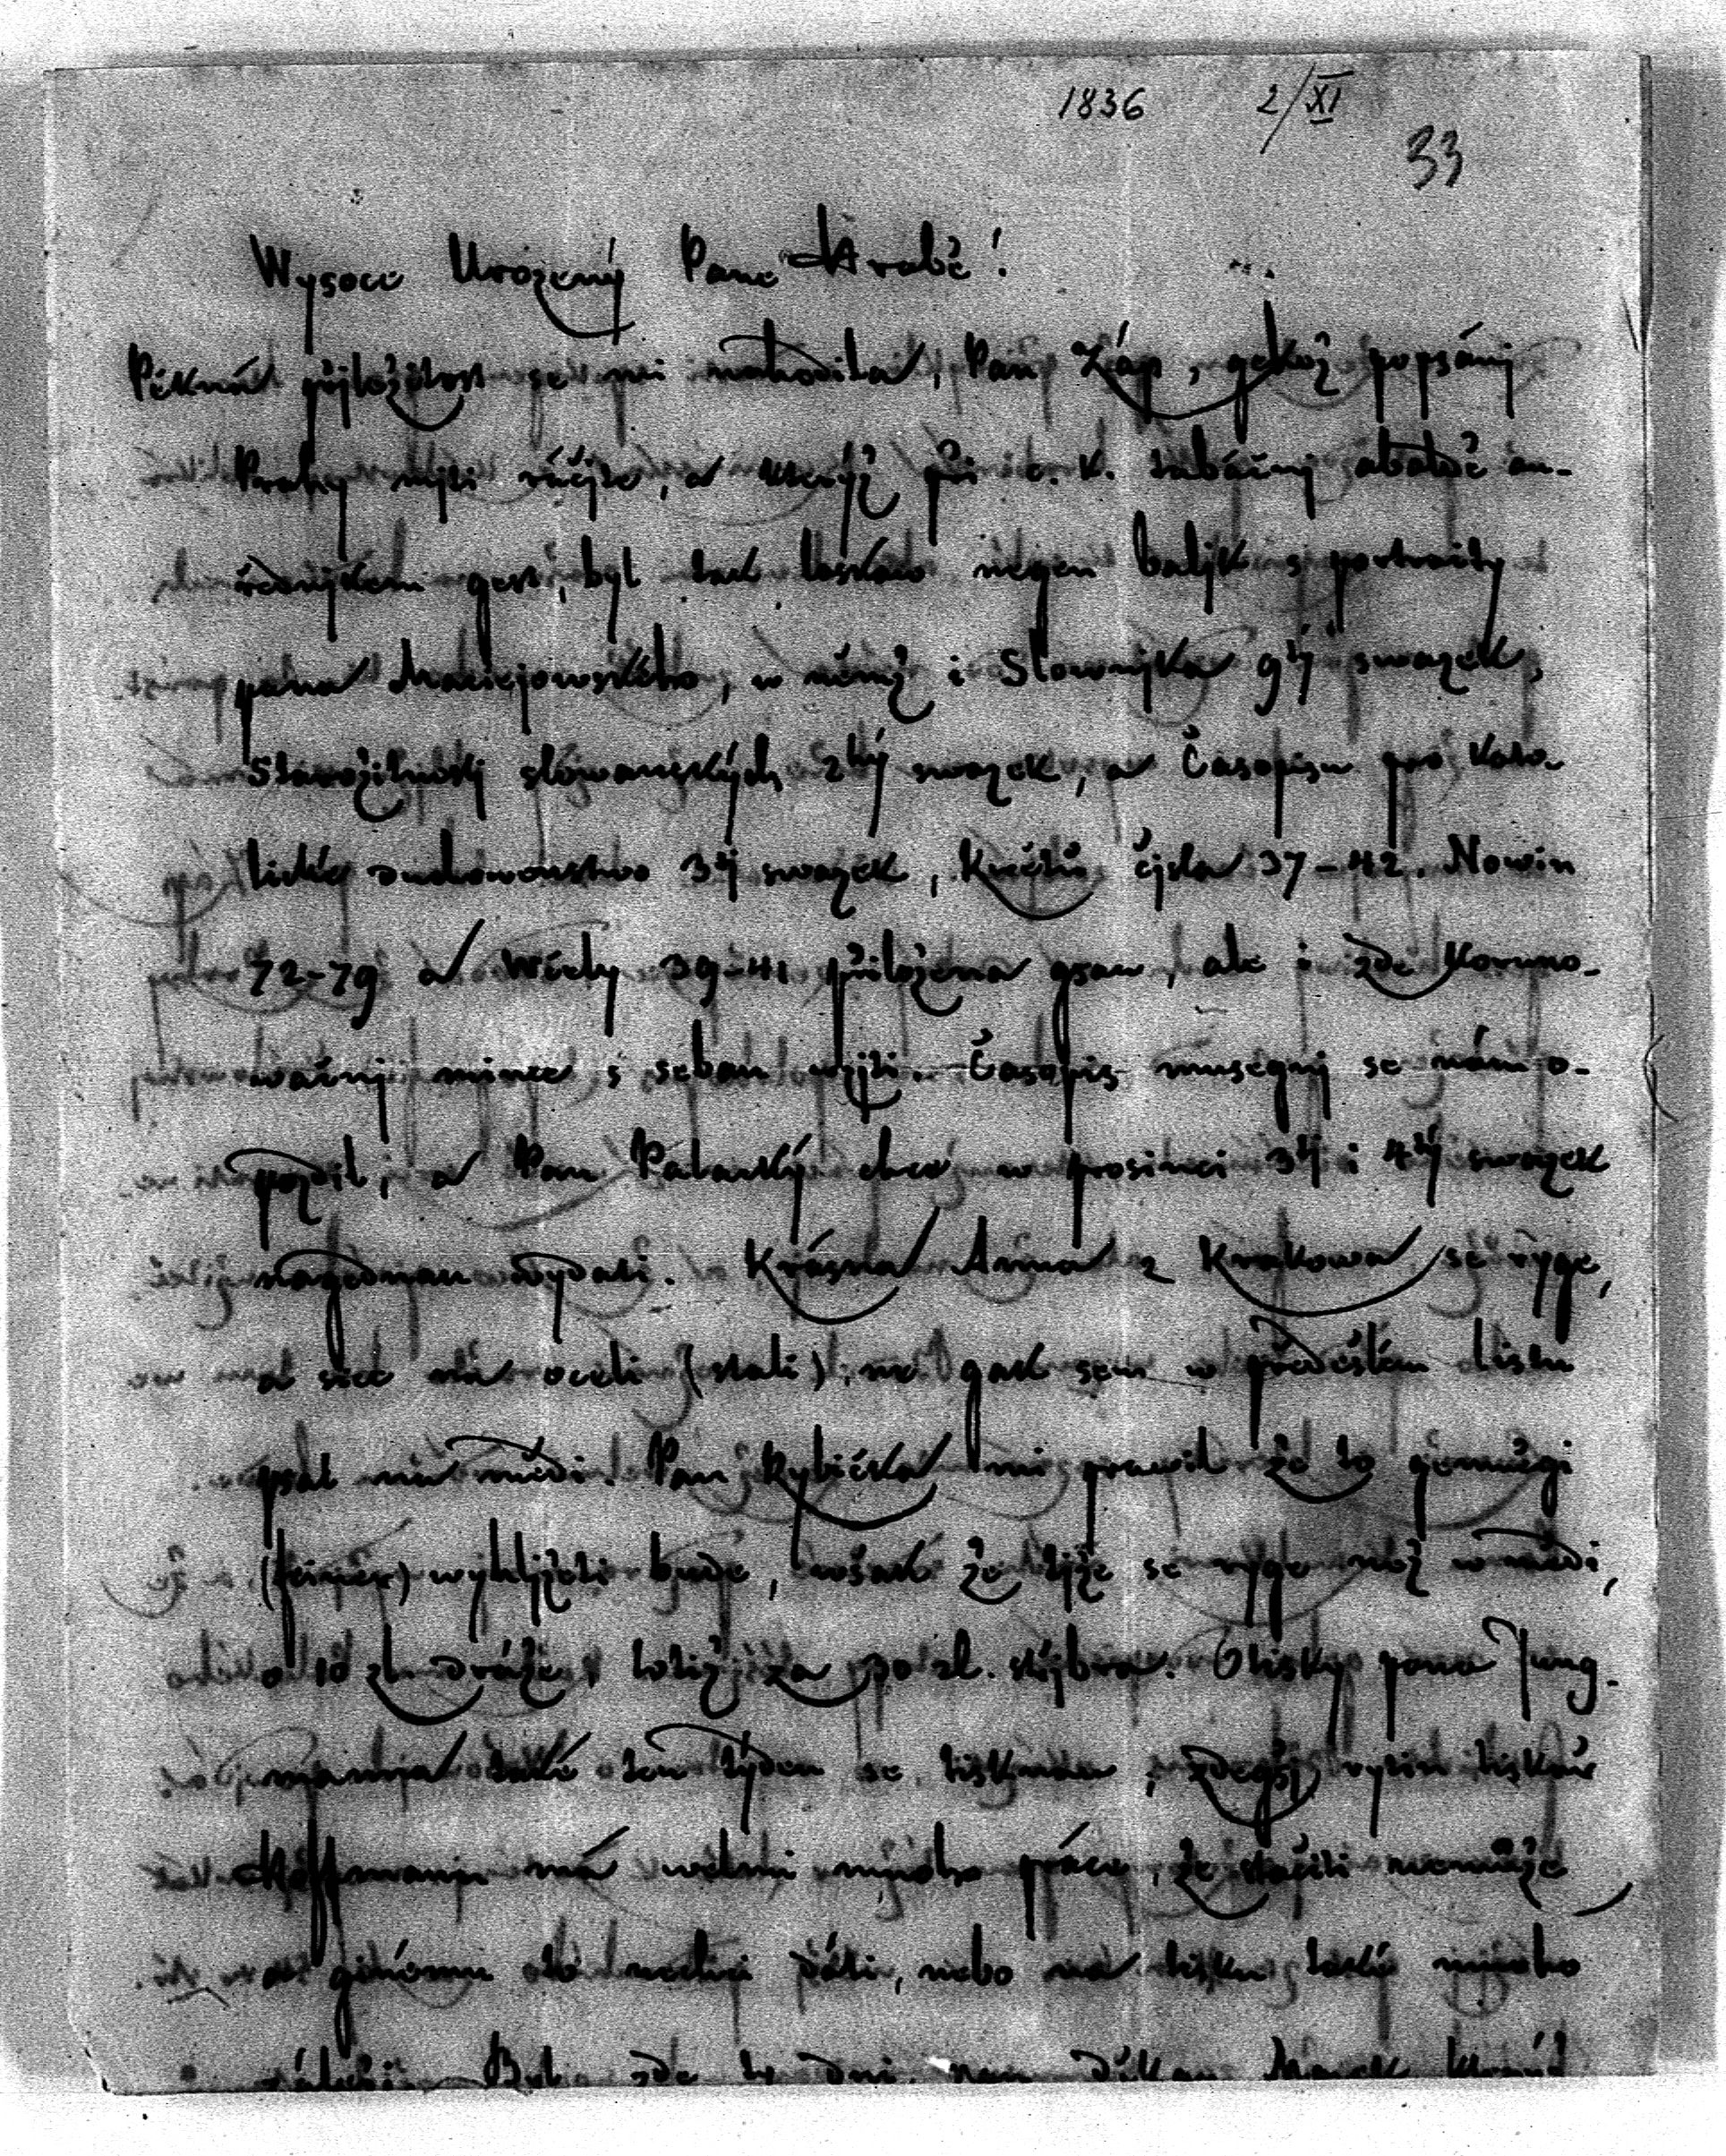 1836 2/XI
33
Wysoce Urozený Pane Hrabě!
Pěkná přjležitost se mi nahodila, Pan Záp, gehož popsánj
Prahy mjti ráčjte, a kterýž při c. k. tabáčnj abaldě au-
řednjkem gest, byl tak laskaw negen baljk s portraity
pana Maciejowského, w němž i Slownjka 9tý swazek,
Starožitnostj slowanských 2hý swazek, a Časopisu pro kato-
lické duchowenstwo 3tj swazek, Kwětů čjsla 37-42. Nowin
72-79 a Wěely 39-41 přiložena gsau, ale i zde koruno-
wačnj mince s sebau wzjti. Časopis musegnj se nám o-
pozdil, a Pan Palacký chce w prosinci 3tj i 4tý swazek
nagednau wydati. Krásná Anna z Krakowa se ryge,
a sice na oceli (stali), ne gak sem w předešlém listu
psal na mědi. Pan Rybička mi prawil že to gemněgi
(feiner) wyhljžeti bude, wšak že tjže se ryge než w mědi,
o 10 zl. dráže, totiž za 30 zl. střjbra. Otisky pana Jung-
manna také ten týden se tisknau, zdegšj rytin tiskař
Hoffmann má welmi mnoho práce, že stačiti nemůže
a ginému to nechci dáti, nebo na tisku také mnoho
záležj. Byl zde ty dni pan Děkan Marek, kterýž